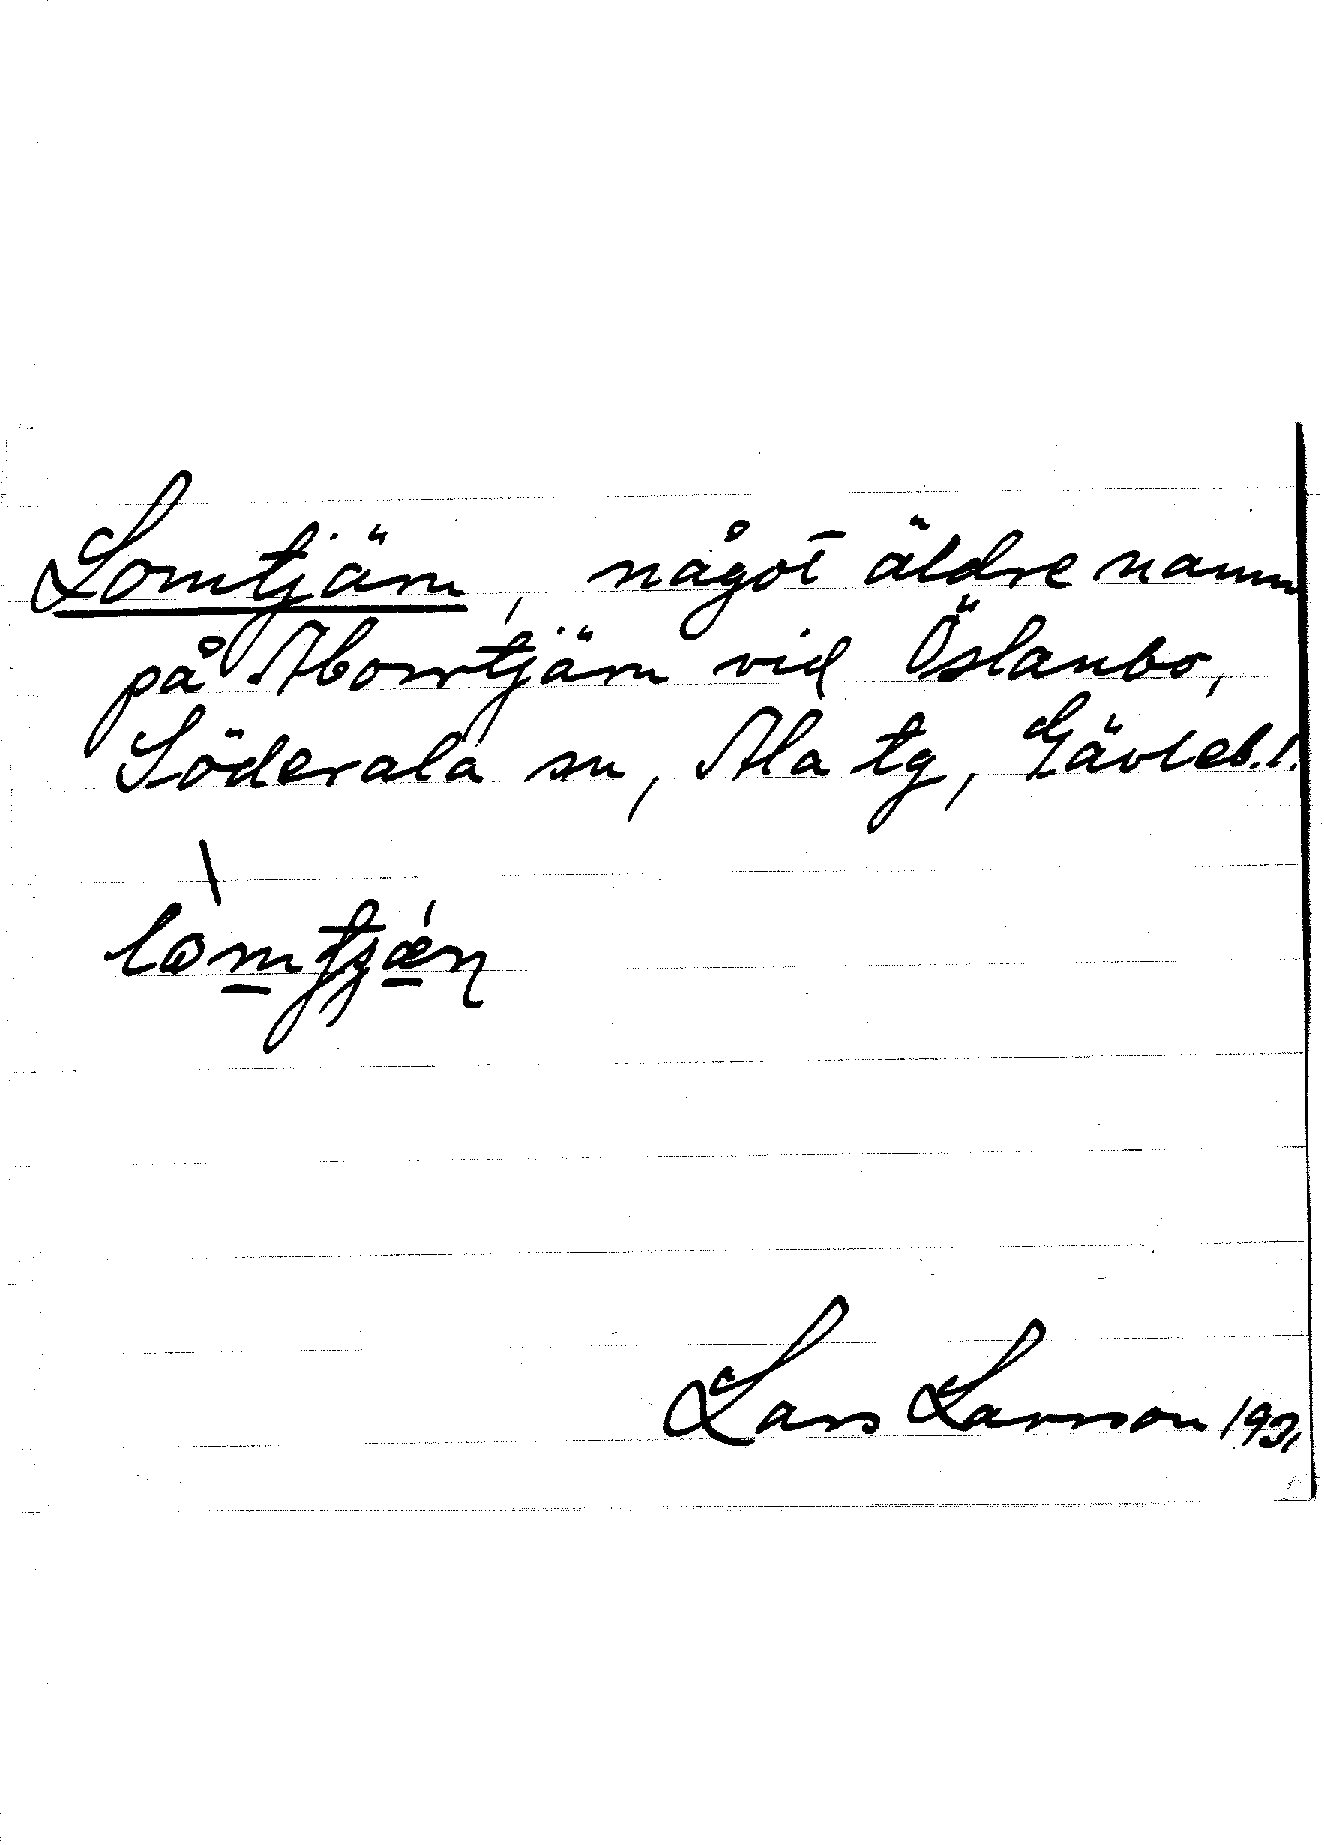 Lomtjärn, något äldre namn
på Aborrtjärn vid Östanbo,
Söderala sn, Ala tg, Gävleb.l.
Lars Larsson 1931